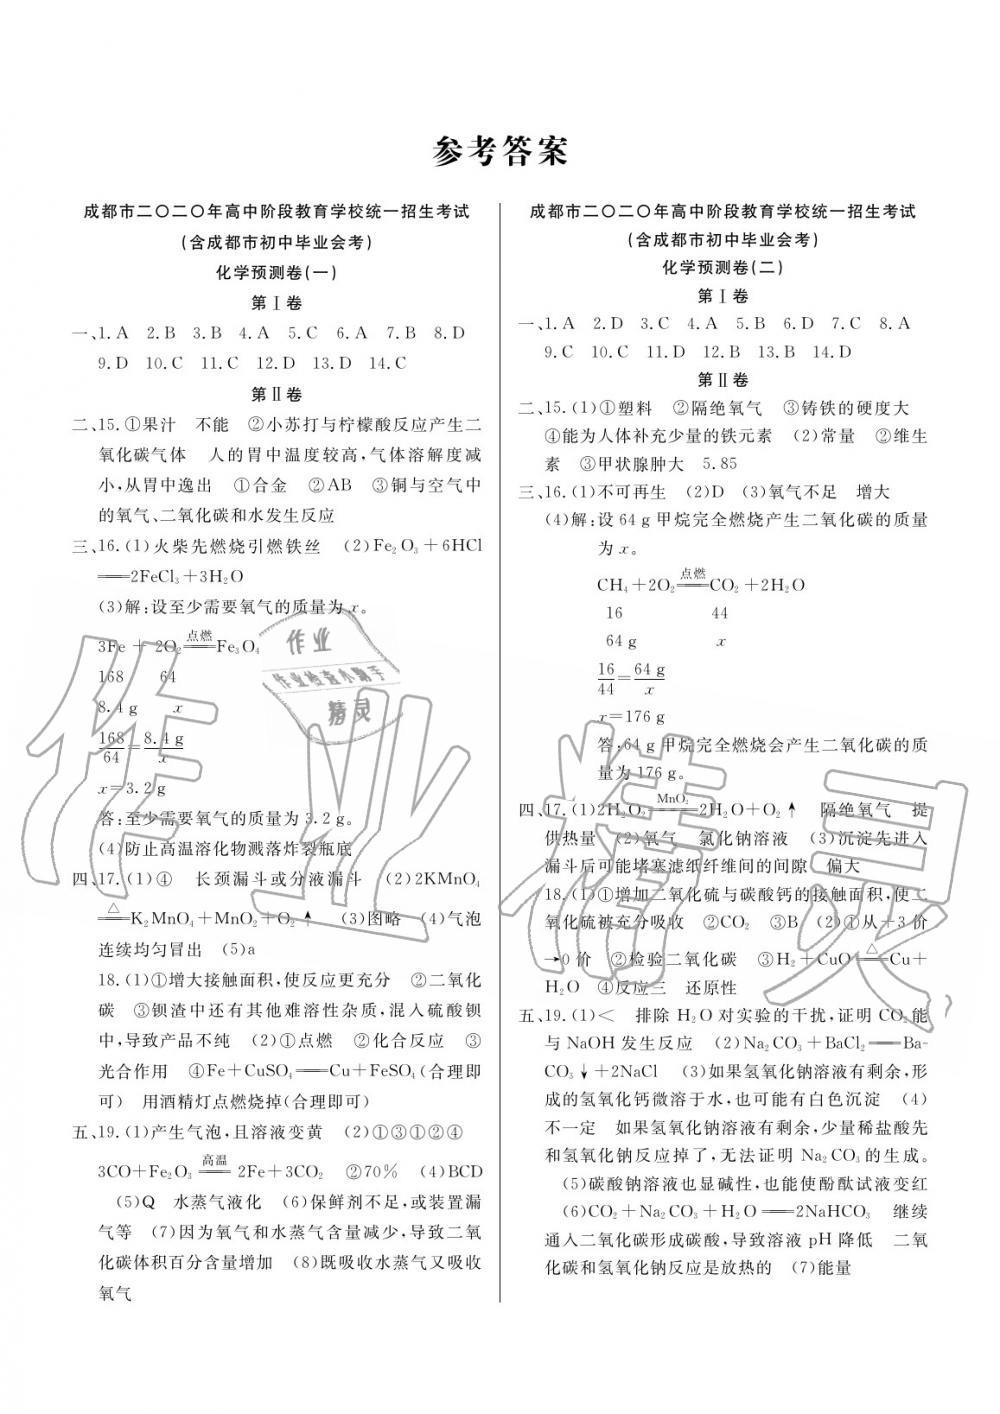 参考答案
成都市二〇二〇年高中阶段教育学校统一招生考试
(含成都市初中毕业会考)
化学预测卷(一)
第Ⅰ卷
一、1.A 2.B 3.B 4.A 5.C 6.A 7.B 8.D
9.D 10.C 11.C 12.D 13.D 14.C
第Ⅱ卷
二、15.①果汁 不能 ②小苏打与柠檬酸反应产生二
氧化碳气体 人的胃中温度较高,气体溶解度减
小,从胃中逸出 ①合金 ②AB ③铜与空气中
的氧气、二氧化碳和水发生反应
三、16.(1)火柴先燃烧引燃铁丝 (2)Fe₂O₃+6HCl
══2FeCl₃+3H₂O
(3)解:设至少需要氧气的质量为x。
点燃
3Fe + 2O₂══Fe₃O₄
168 64
8.4g x
168/64=8.4g/x
x=3.2g
答:至少需要氧气的质量为3.2g。
(4)防止高温溶化物溅落炸裂瓶底
四、17.(1)④ 长颈漏斗或分液漏斗 (2)2KMnO₄
△
══K₂MnO₄+MnO₂+O₂↑ (3)图略 (4)气泡
连续均匀冒出 (5)a
18.(1)①增大接触面积,使反应更充分 ②二氧化
碳 ③钡渣中还有其他难溶性杂质,混入硫酸钡
中,导致产品不纯 (2)①点燃 ②化合反应 ③
光合作用 ④Fe+CuSO₄══Cu+FeSO₄(合理即
可) 用酒精灯点燃烧掉(合理即可)
五、19.(1)产生气泡,且溶液变黄 (2)①③①②④
高温
3CO+Fe₂O₃══2Fe+3CO₂ ②70% (4)BCD
(5)Q 水蒸气液化 (6)保鲜剂不足,或装置漏
气等 (7)因为氧气和水蒸气含量减少,导致二氧
化碳体积百分含量增加 (8)既吸收水蒸气又吸收
氧气
成都市二〇二〇年高中阶段教育学校统一招生考试
(含成都市初中毕业会考)
化学预测卷(二)
第Ⅰ卷
一、1.A 2.D 3.C 4.A 5.B 6.D 7.C 8.A
9.C 10.C 11.D 12.B 13.B 14.D
第Ⅱ卷
二、15.(1)①塑料 ②隔绝氧气 ③铸铁的硬度大
④能为人体补充少量的铁元素 (2)常量 ②维生
素 ③甲状腺肿大 5.85
三、16.(1)不可再生 (2)D (3)氧气不足 增大
(4)解:设64g甲烷完全燃烧产生二氧化碳的质量
为x。
点燃
CH₄+2O₂══CO₂+2H₂O
16 44
64g x
16/44=64g/x
x=176g
答:64g甲烷完全燃烧会产生二氧化碳的质
量为176g。
MnO₂
四、17.(1)2H₂O₂══2H₂O+O₂↑ 隔绝氧气 提
供热量 (2)氧气 氯化钠溶液 (3)沉淀先进入
漏斗后可能堵塞滤纸纤维间的间隙 偏大
18.(1)①增加二氧化硫与碳酸钙的接触面积,使二
氧化硫被充分吸收 ②CO₂ ③B (2)①从+3价
→0价 ②检验二氧化碳 ③H₂+CuO══Cu+
△
H₂O ④反应三 还原性
五、19.(1)< 排除H₂O对实验的干扰,证明CO₂能
与NaOH发生反应 (2)Na₂CO₃+BaCl₂══Ba-
CO₃↓+2NaCl (3)如果氢氧化钠溶液有剩余,形
成的氢氧化钙微溶于水,也可能有白色沉淀 (4)
不一定 如果氢氧化钠溶液有剩余,少量稀盐酸先
和氢氧化钠反应掉了,无法证明Na₂CO₃的生成。
(5)碳酸钠溶液也显碱性,也能使酚酞试液变红
(6)CO₂+Na₂CO₃+H₂O══2NaHCO₃ 继续
通入二氧化碳形成碳酸,导致溶液pH降低 二氧
化碳和氢氧化钠反应是放热的 (7)能量
作业
作业检查小助手
精灵
作业精灵